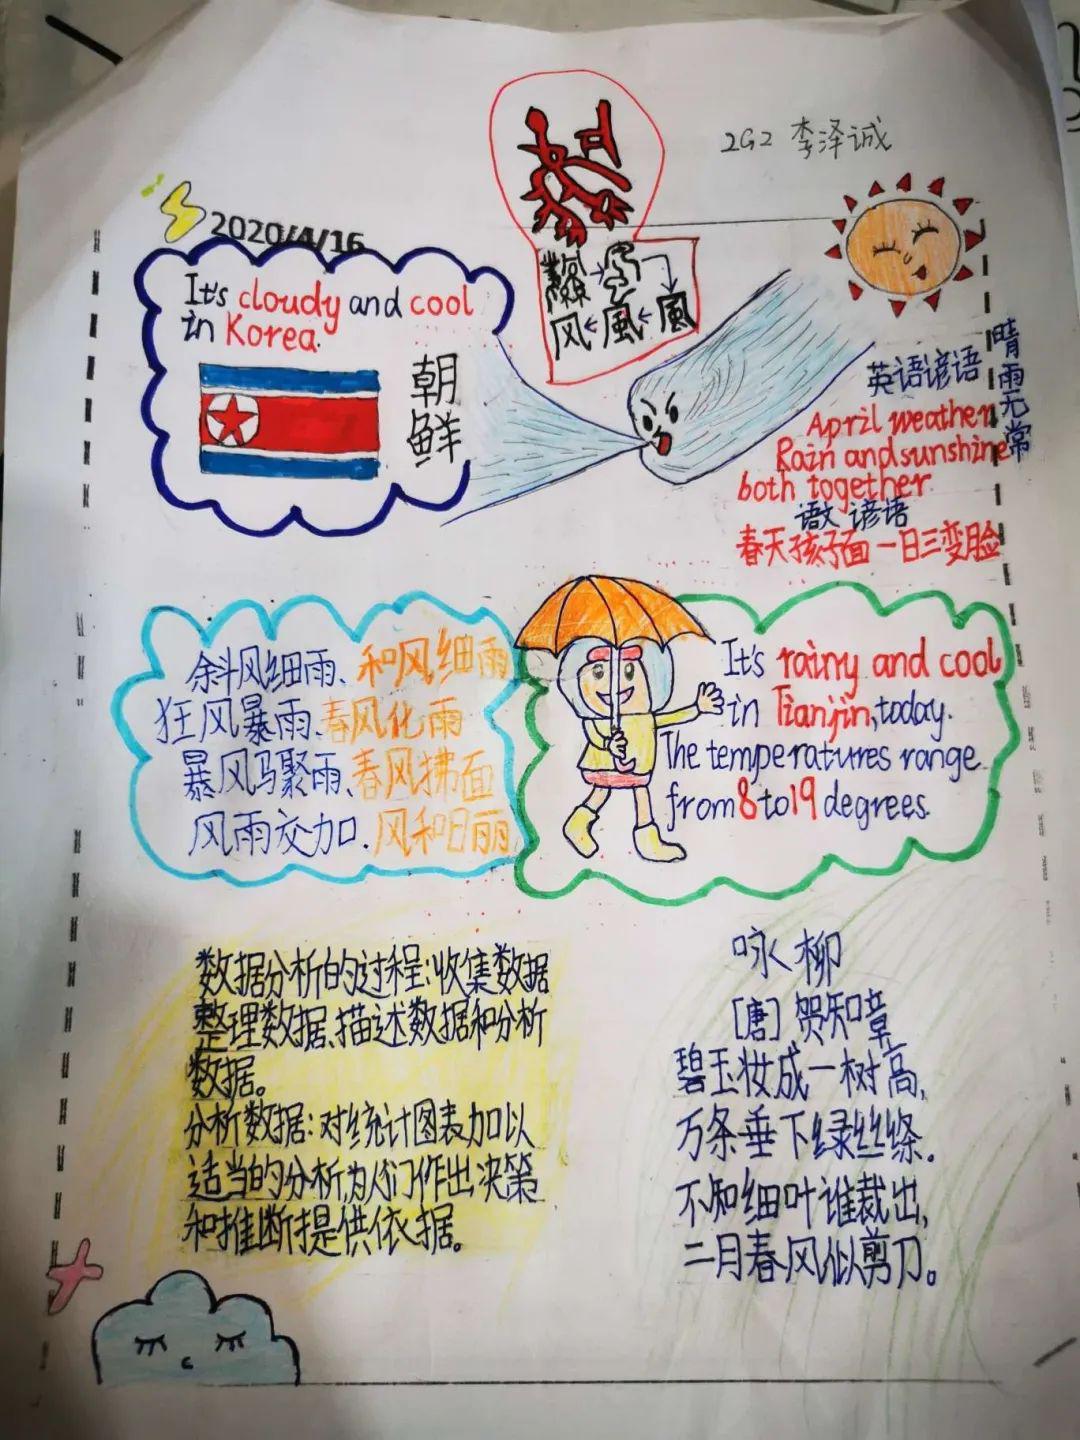 2G2 李泽诚
2020/4/16
It's cloudy and cool
in Korea.
朝鲜
风←風←
英语谚语
晴雨无常
April weather
Rain and sunshine
both together
语文谚语
春天孩子面一日三变脸
斜风细雨、和风细雨
狂风暴雨、春风化雨
暴风骤雨、春风拂面
风雨交加.风和日丽
It's rainy and cool
in Tianjin,today.
The temperatures range
from 8 to 19 degrees.
数据分析的过程:收集数据
整理数据、描述数据和分析
数据。
分析数据:对统计图表加以
适当的分析,为人们作出决策
和推断提供依据。
咏柳
[唐]贺知章
碧玉妆成一树高,
万条垂下绿丝绦.
不知细叶谁裁出,
二月春风似剪刀。